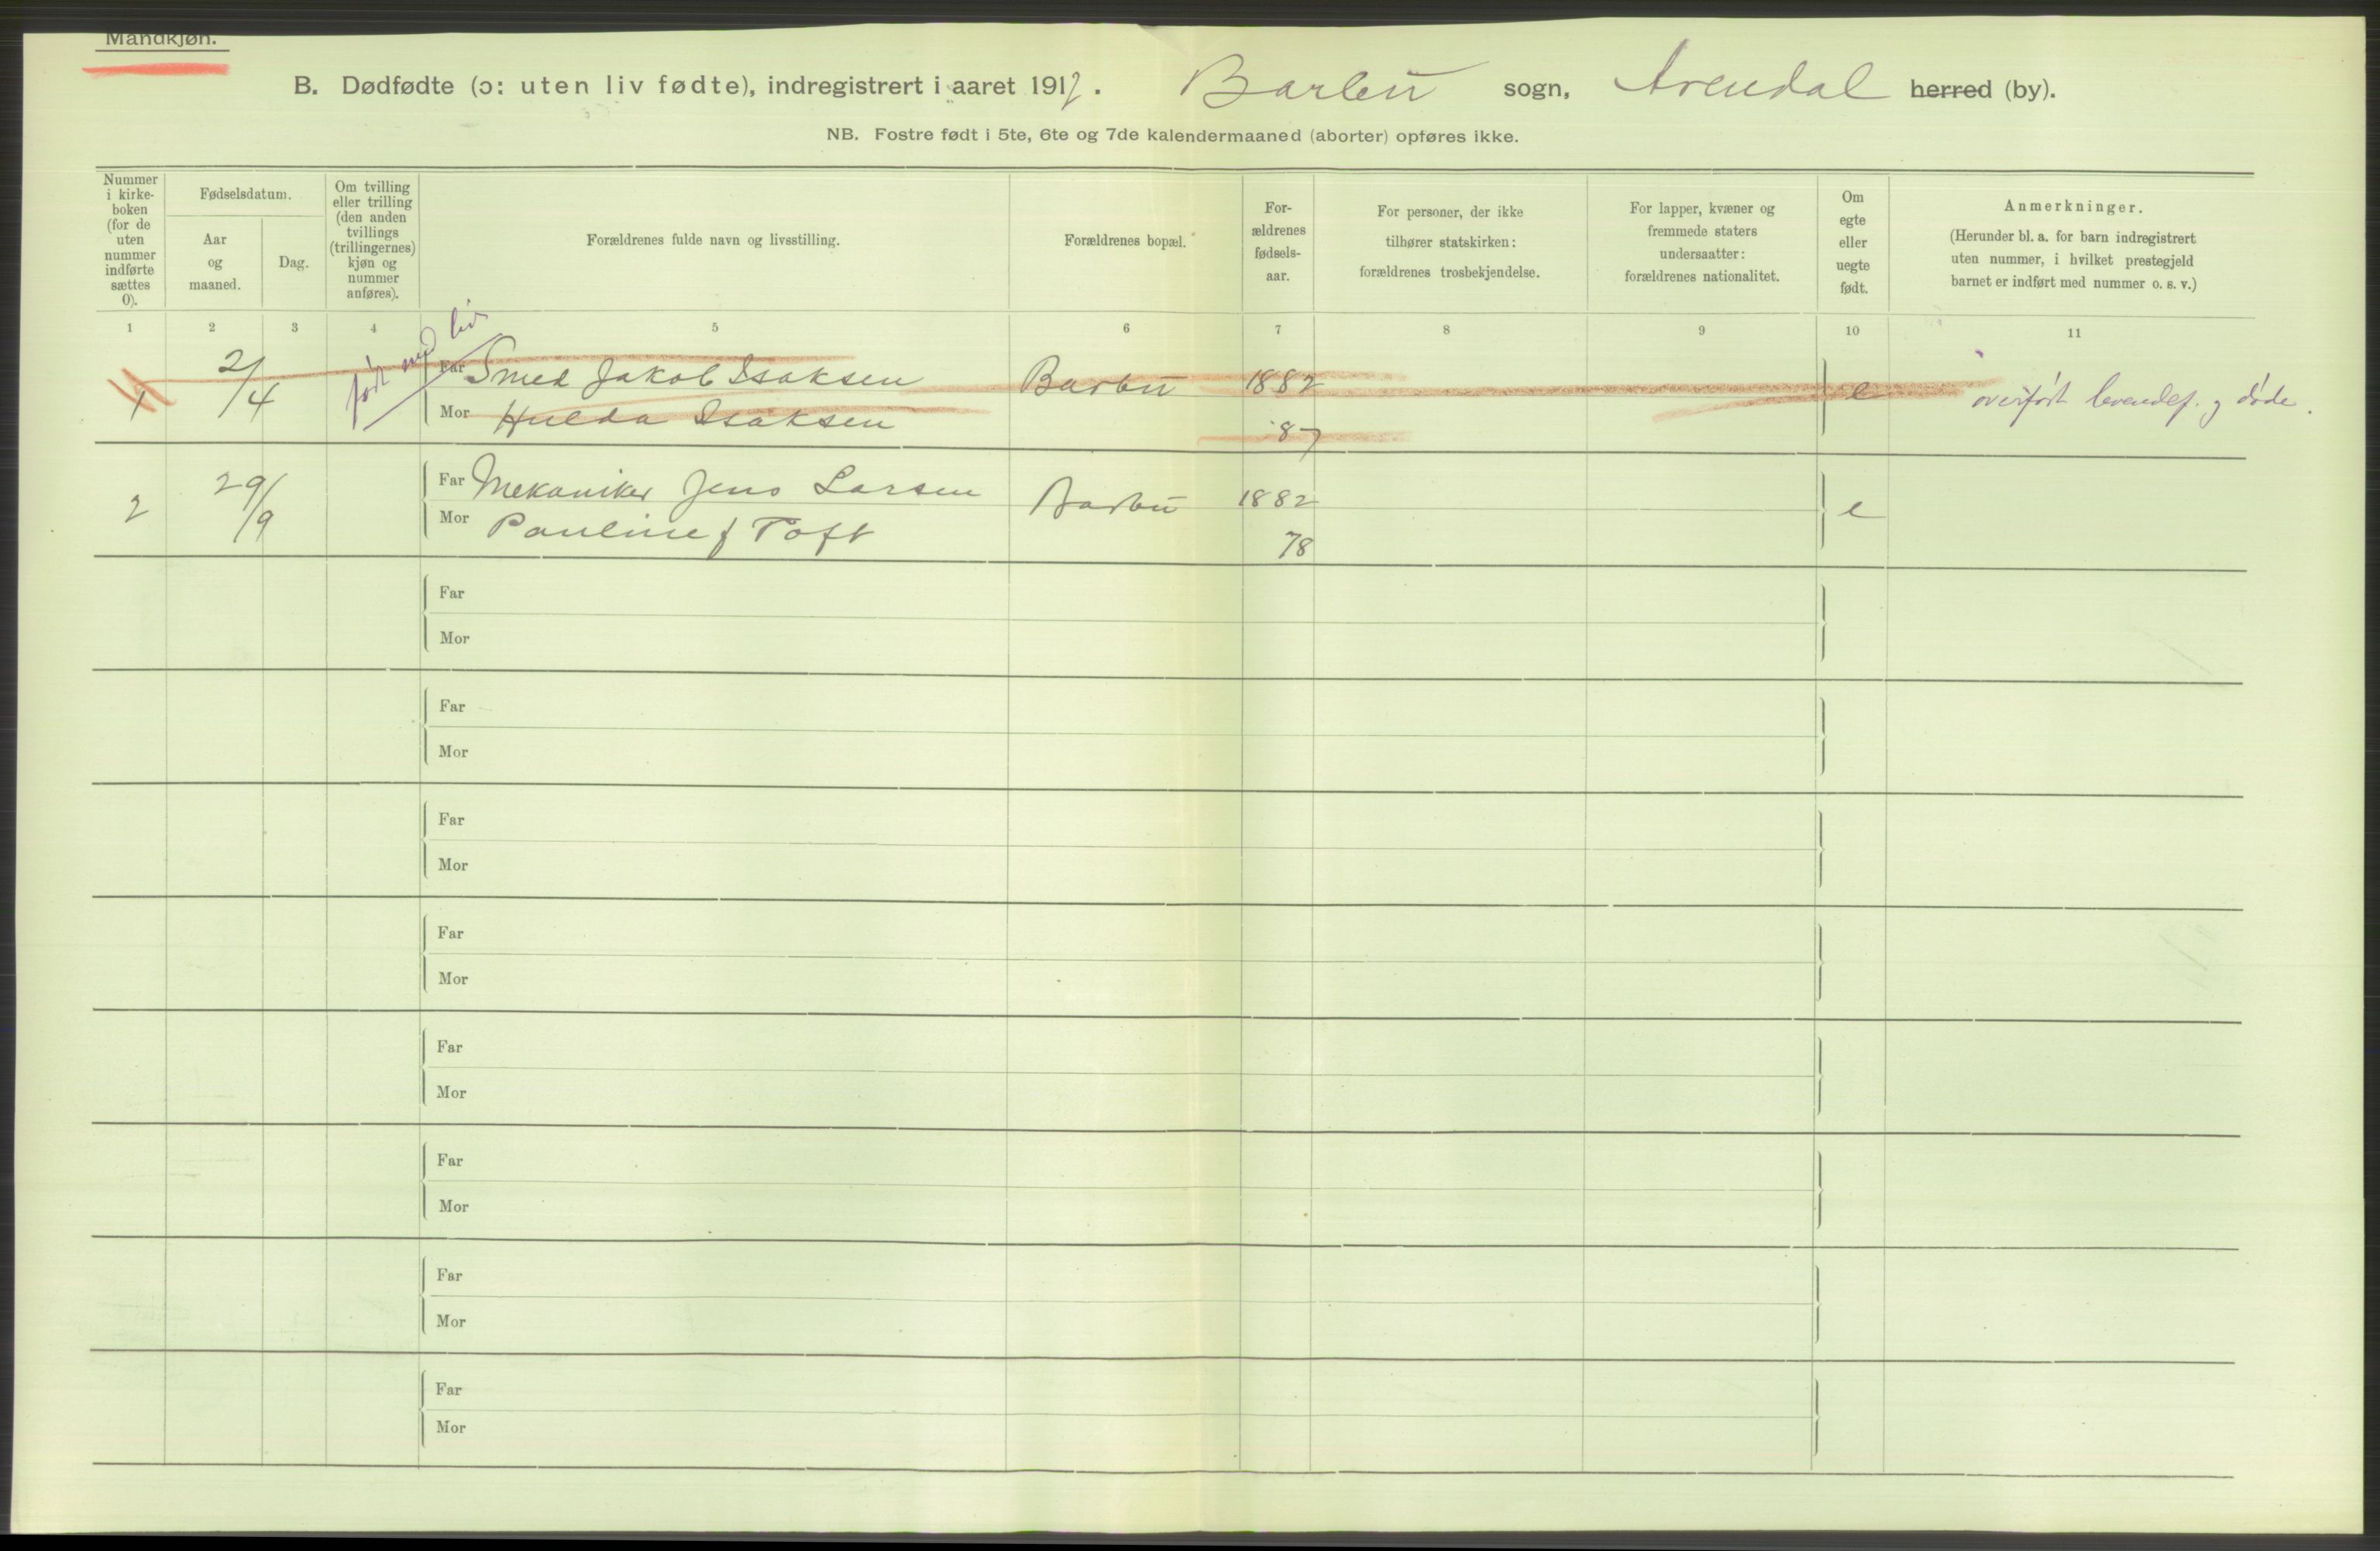 Mandkjøn.
B. Dødfødte (ɔ: uten liv fødte), indregistrert i aaret 1912. Barbu sogn, Arendal herred (by).
NB. Fostre født i 5te, 6te og 7de kalendermaaned (aborter) opføres ikke.
Nummer i kirke- boken (for de uten nummer indførte sættes 0).
Fødselsdatum.
Aar og maaned.
Dag.
Om tvilling eller trilling (den anden tvillings (trillingernes) kjøn og nummer anføres).
Forældrenes fulde navn og livsstilling.
Forældrenes bopæl.
For- ældrenes fødsels- aar.
For personer, der ikke tilhører statskirken: forældrenes trosbekjendelse.
For lapper, kvæner og fremmede staters undersaatter: forældrenes nationalitet.
Om egte eller uegte født.
Anmerkninger.
(Herunder bl. a. for barn indregistrert uten nummer, i hvilket prestegjeld barnet er indført med nummer o. s. v.)
1 2 3 4 5 6 7 8 9 10 11
født med liv
1 2/4 Far Smed Jakob Isaksen Barbu 1882 e overført levendef. og døde.
Mor Hulda Isaksen 87
2 29/9 Far Mekaniker Jens Larsen Barbu 1882 e
Mor Pauline f Toft 78
Far
Mor
Far
Mor
Far
Mor
Far
Mor
Far
Mor
Far
Mor
Far
Mor
Far
Mor